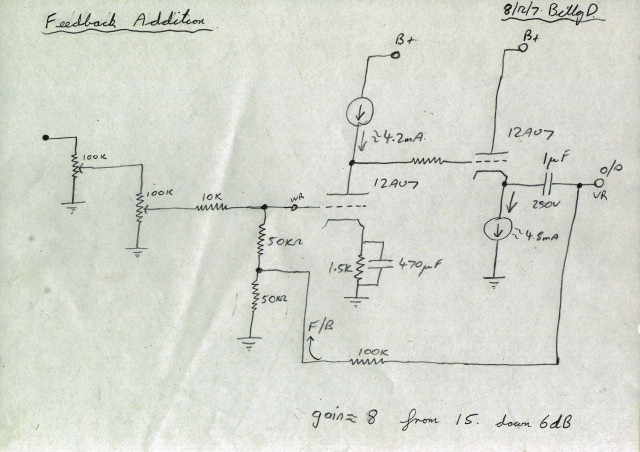 Feedback Addition
8/12/7. BillyD.
B+
B+
≈4.2mA
12AU7
1µF
O/P
100K
12AU7
VR
100K
10K
VR
250V
≈4.8mA
50KΩ
1.5K
470µF
50KΩ
F/B
100K
gain ≈ 8 from 15. down 6dB